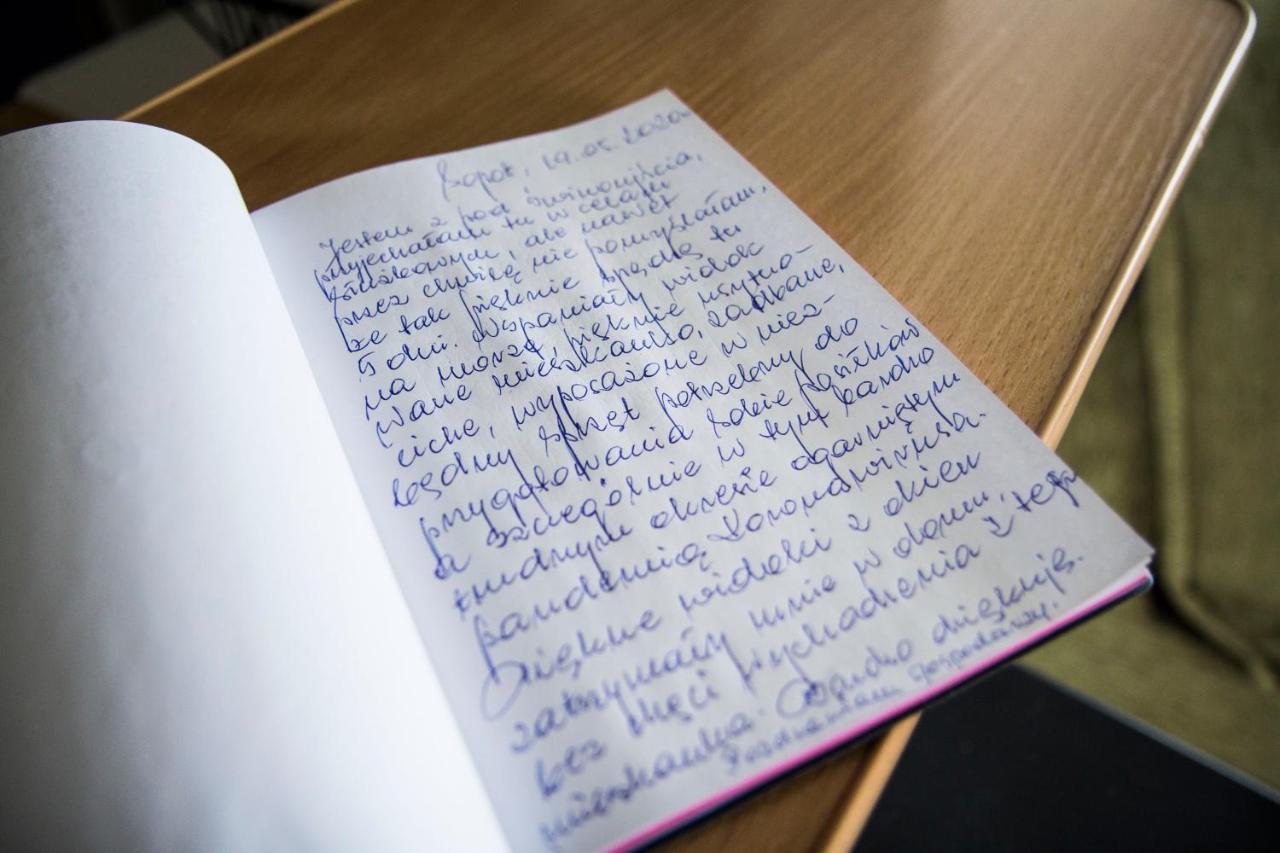 Sopot, 19.05.2020
Jestem z pod Świnoujścia,
przyjechałam tu w celach
, ale nawet
przez chwilę nie pomyślałam,
że tak pięknie spędzę tu
5 dni. Wspaniały widok
na morze, pięknie usytuo-
wane mieszkanko, zadbane,
ciche, wyposażone w niez-
będny sprzęt potrzebny do
przygotowania sobie posiłków
a szczególnie w tym bardzo
trudnym okresie ogarniętym
pandemią Koronawirusa.
Piękne widoki z okien
zatrzymały mnie w domu,
bez chęci wychodzenia z tego
mieszkanka. Bardzo dziękuję.
Pozdrawiam gospodarzy.